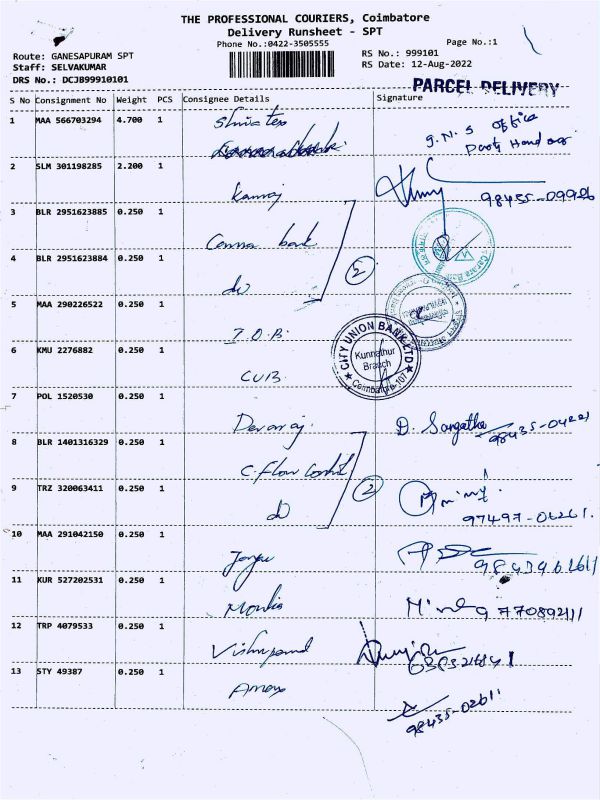 THE PROFESSIONAL COURIERS, Coimbatore
Delivery Runsheet - SPT
Phone No.:0422-3505555
Page No.:1
Route: GANESAPURAM SPT
RS No.: 999101
Staff: SELVAKUMAR
RS Date: 12-Aug-2022
DRS No.: DCJB99910101
PARCEL DELIVERY
S No Consignment No Weight PCS Consignee Details Signature
1 MAA 566703294 4.700 1
G.N.S office
Party Hand
2 SLM 301198285 2.200 1
Kamraj
98435-09926
3 BLR 2951623885 0.250 1
bank
4 BLR 2951623884 0.250 1
do
2
5 MAA 290226522 0.250 1
I.O.B.
6 KMU 2276882 0.250 1
CUB
CITY UNION BANK LTD
Kunnathur
Branch
Coimbatore-107
7 POL 1520530 0.250 1
Devaraj.
D. Sangetha
98435-04221
8 BLR 1401316329 0.250 1
C. Flow Control
9 TRZ 320063411 0.250 1
do
2
97497-06261.
10 MAA 291042150 0.250 1
11 KUR 527202531 0.250 1
9770892111
12 TRP 4079533 0.250 1
13 STY 49387 0.250 1
98435-02611